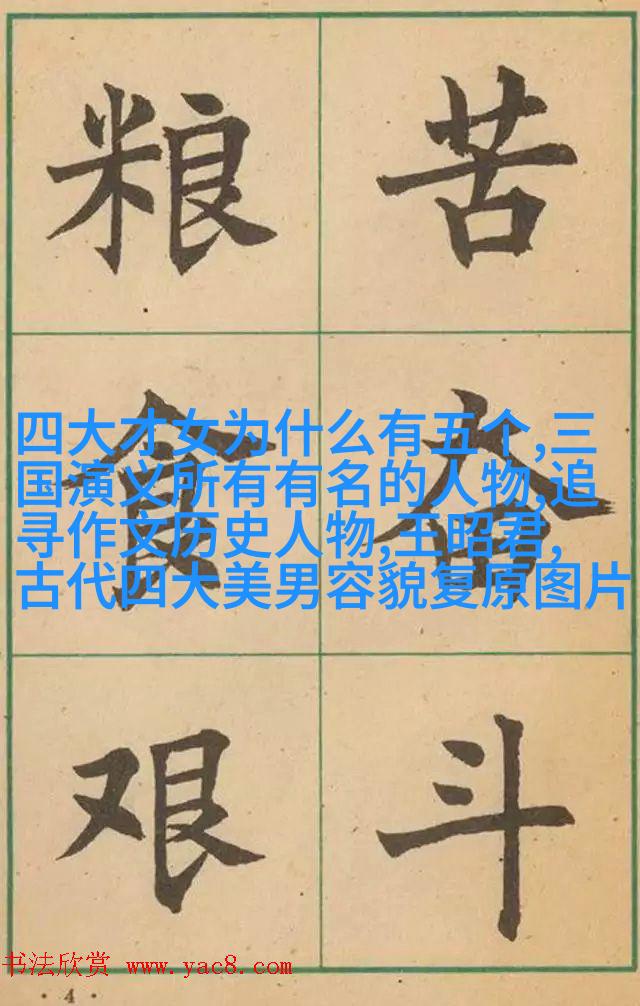 粮食艰
苦奋斗
四大才女为什么有五个,三
国演义所有有名的人物,追
寻作文历史人物,王昭君,
古代四大美男容貌复原图片
书法欣赏 www.yac8.com
· 4 ·